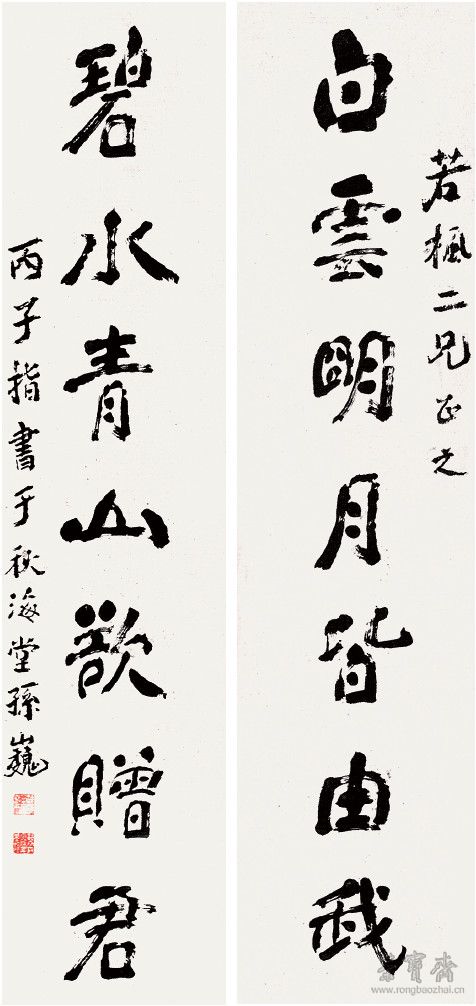 若楓二兄正之
白雲明月皆由我
碧水青山欲贈君
丙子指書于秋海堂孫巍
榮寳齋
www.rongbaozhai.cn